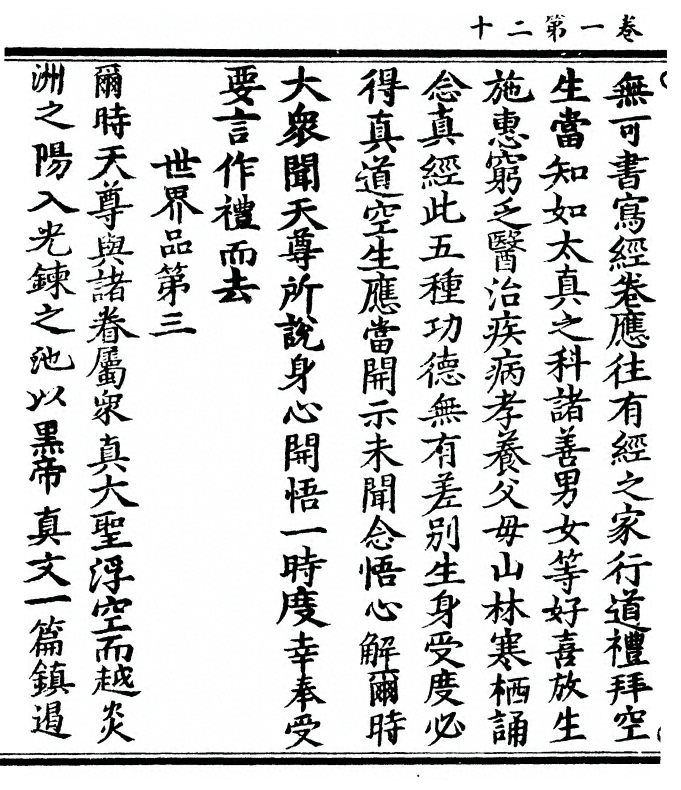 卷一第二十
無可書寫經卷應往有經之家行道禮拜空
生當知如太真之科諸善男女等好喜放生
施惠窮乏醫治疾病孝養父母山林寒栖誦
念真經此五種功德無有差別生身受度必
得真道空生應當開示未聞念悟心解爾時
大衆聞天尊所說身心開悟一時度幸奉受
要言作禮而去
世界品第三
爾時天尊與諸眷屬衆真大聖浮空而越炎
洲之陽入光鍊之池以黑帝真文一篇鎮遏